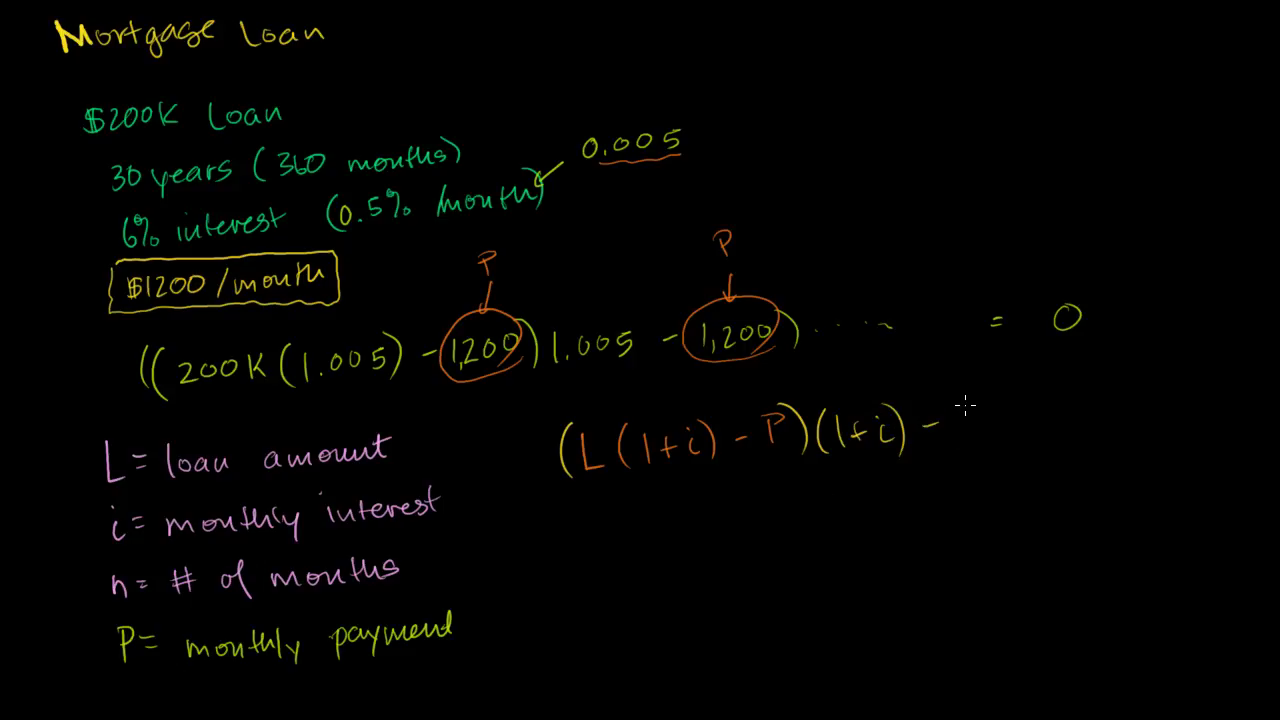 Mortgage Loan
$200K Loan
30 years (360 months)
0.005
6% interest (0.5% /month)
$1200 /month
P P
((200K(1.005) - 1,200)1.005 - 1,200) ..... = 0
L = loan amount
(L(1+i) - P)(1+i) -
i = monthly interest
n = # of months
P = monthly payment